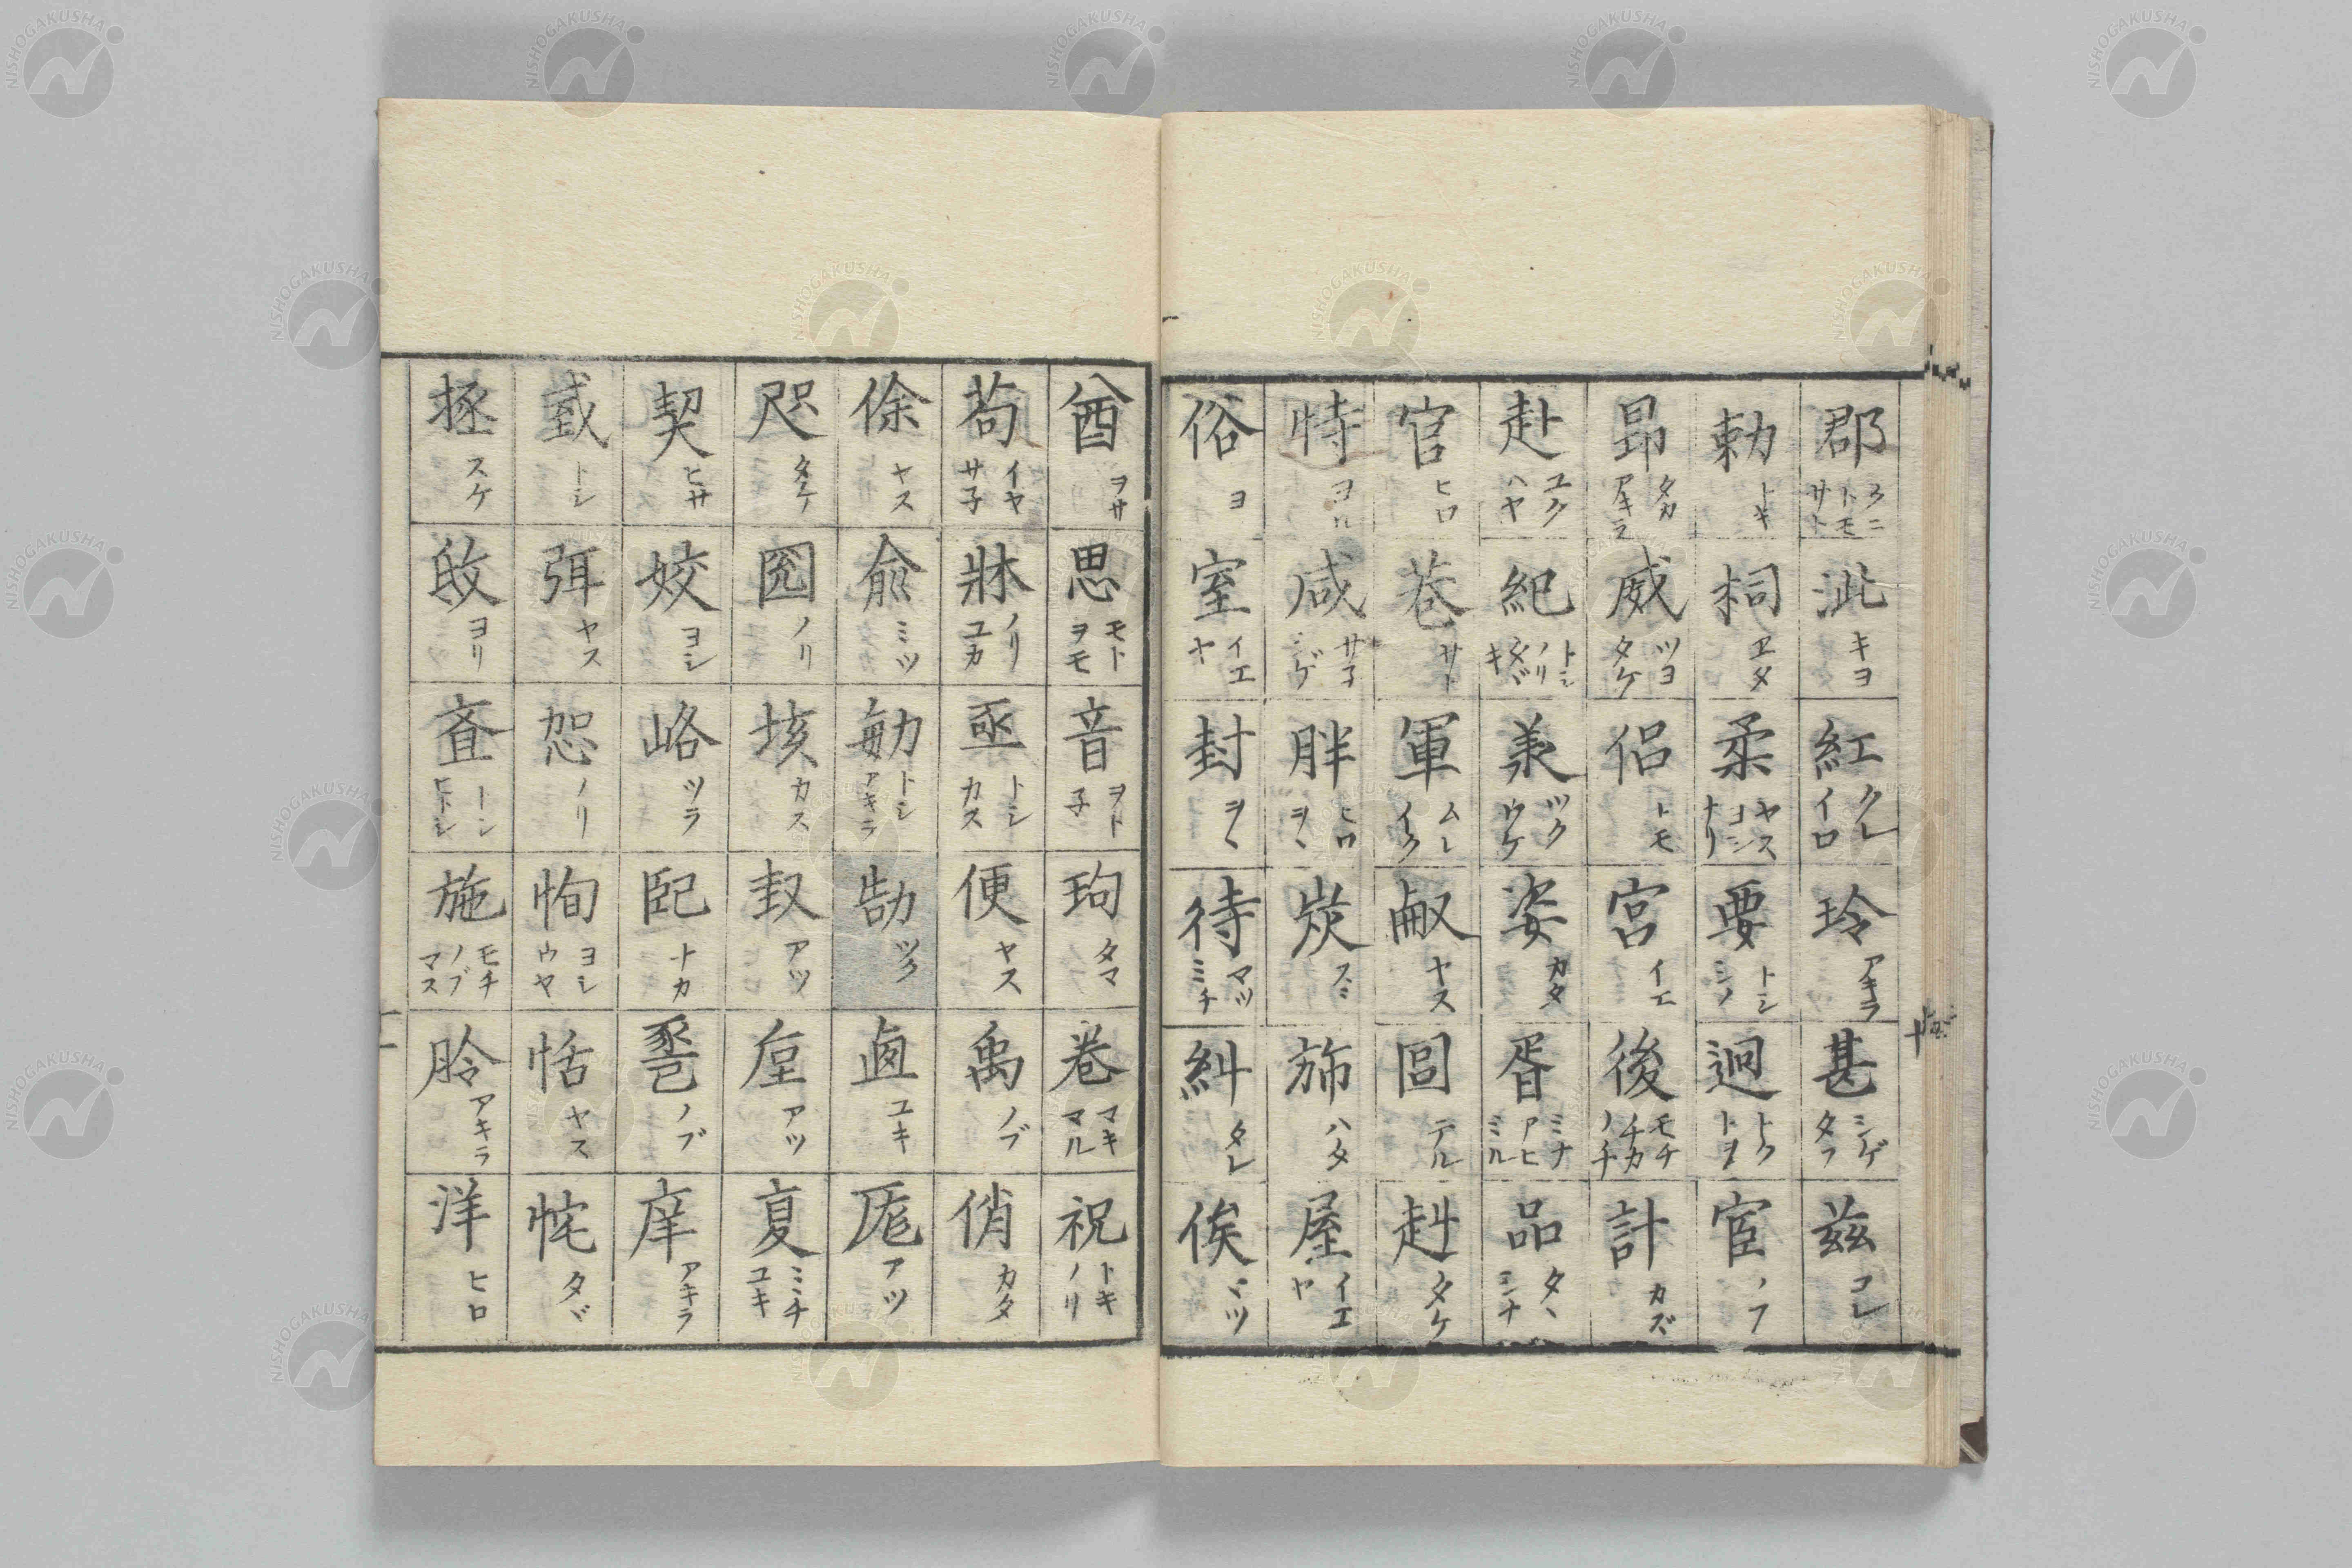 郡 クニ トモ サト
沚 キヨ
紅 クレ イロ
玲 アキラ
甚 シゲ タフ
茲 コレ
勅 トキ
柌 エダ
柔 ヤス ヨシ ナリ
要 トシ シノ
迥 トク トヲ
宦 ノフ
昴 タカ アキラ
威 ツヨ タケ
侶 トモ
宮 イエ
後 モチ チカ ノチ
計 カズ
赴 ユク ハヤ
紀 トシ ノリ タヾ キ
羕 ツク ウケ
姿 カタ
胥 ミナ アヒ ミル
品 タヽ シナ
官 ヒロ
巷 サト
軍 ムレ イク
畒 ヤス
囼 テル
赳 タケ
恃 ヨル
咸 サ子 シゲ
胖 ヒロ ヲヽ
炭 スミ
斾 ハタ
屋 イエ ヤ
俗 ヨ
室 イエ ヤ
封 ヲヽ
待 マツ ミチ
糾 タレ
俟 ミツ
酋 ヲサ
思 モト ヲモ
音 ヲト 子
玽 タマ
巻 マキ マル
祝 トキ ノリ
苟 イヤ サ子
牀 ノリ ユカ
亟 トシ カス
便 ヤス
禹 ノブ
俏 カタ
俆 ヤス
俞 ミツ
勄 トシ アキラ
勂 ツク
卣 ユキ
厖 アツ
咫 タケ
圀 ノリ
垓 カス
㪴 アツ
垕 アツ
夏 ミチ ユキ
契 ヒサ
姣 ヨシ
峈 ツラ
巸 トカ
巹 ノブ
庠 アキラ
彧 トシ
弭 ヤス
恕 ノリ
恂 ヨシ ウヤ
恬 ヤス
恾 タヾ
拯 スケ
敃 ヨリ
斎 トシ ヒトシ
施 モチ ノブ マス
朎 アキラ
洋 ヒロ